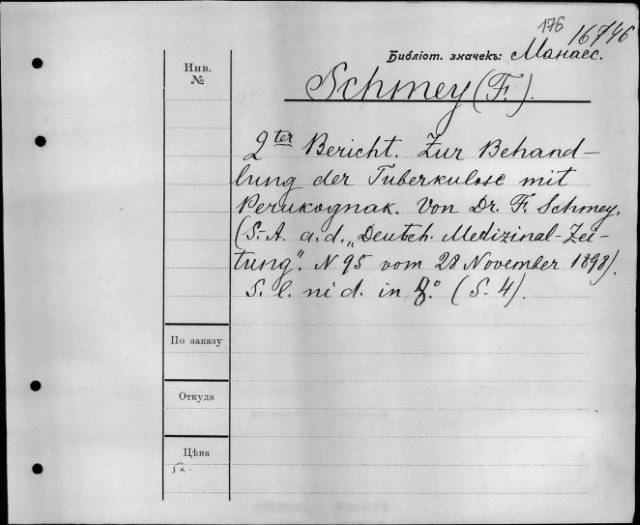 176 16746
Библіот. значекъ: Манасс.
Инв.
№
Schmey (F.).
2ter Bericht. Zur Behand-
lung der Tuberkulose mit
Perukognak. Von Dr. F. Schmey.
(S.-A. a.d. „Deutsch. Medizinal-Zei-
tung“. N 95 vom 28 November 1898).
S. l. ni d. in 8.° (S. 4).
По заказу
Откуда
Цѣна